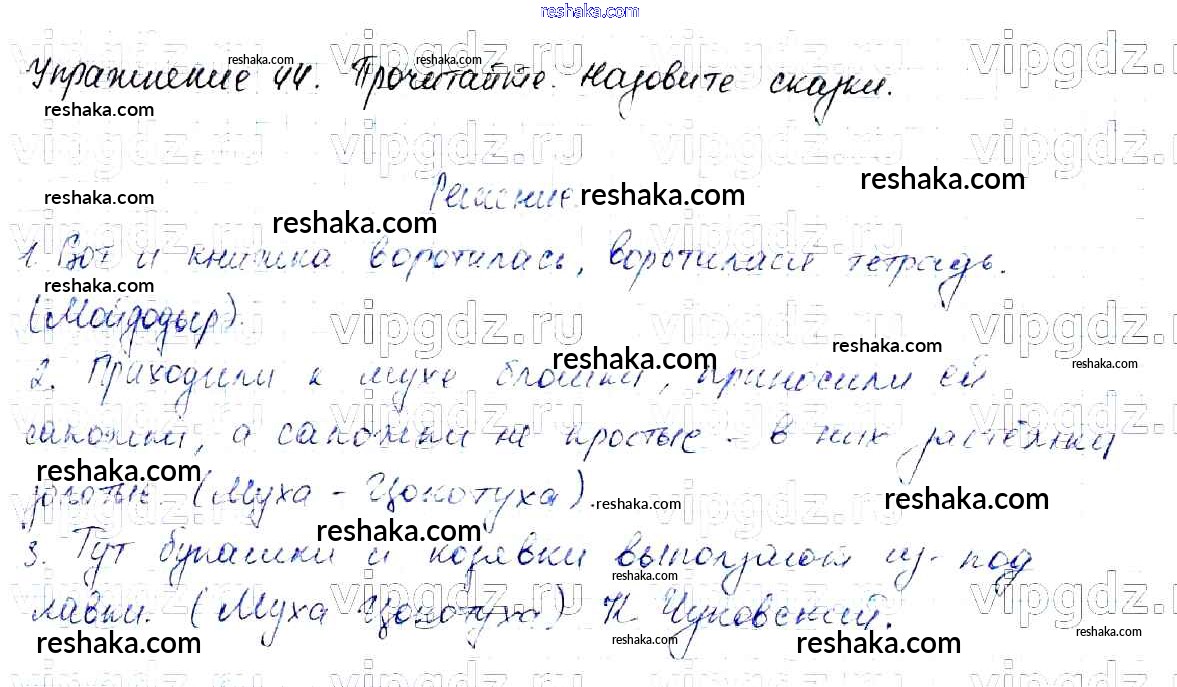 reshaka.com
Упражнение 44. Прочитайте. Назовите сказки.
Решение.
1. Вот и книжка воротилась, воротилася тетрадь.
(Мойдодыр).
2. Приходили к мухе блошки, приносили ей
сапожки, а сапожки не простые - в них застёжки
золотые. (Муха - Цокотуха).
3. Тут букашки и козявки выползают из-под
лавки. (Муха Цокотуха) К Чуковский.